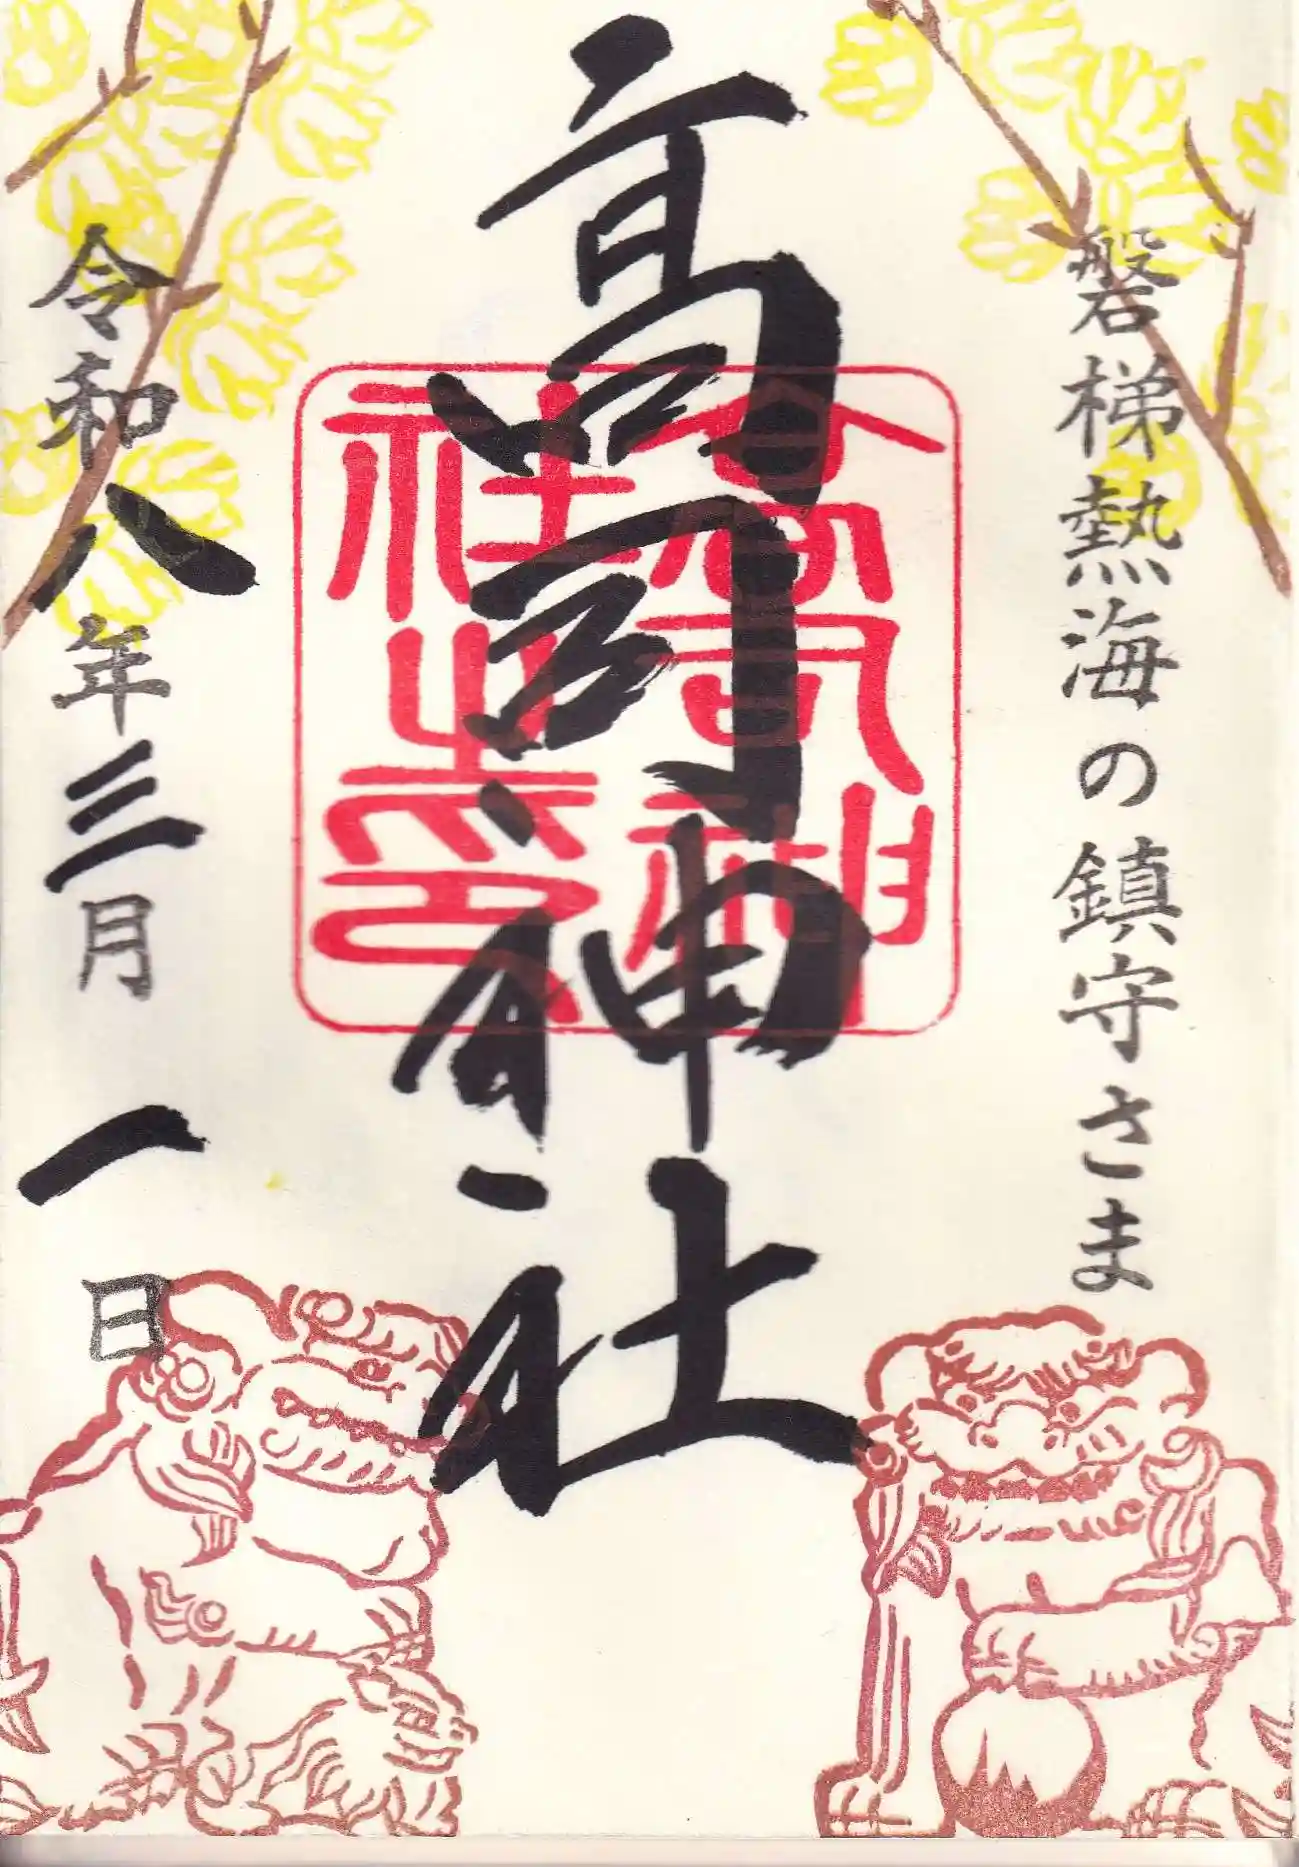 磐梯熱海の鎮守さま
高司神社
高司神社之印
令和八年三月一日